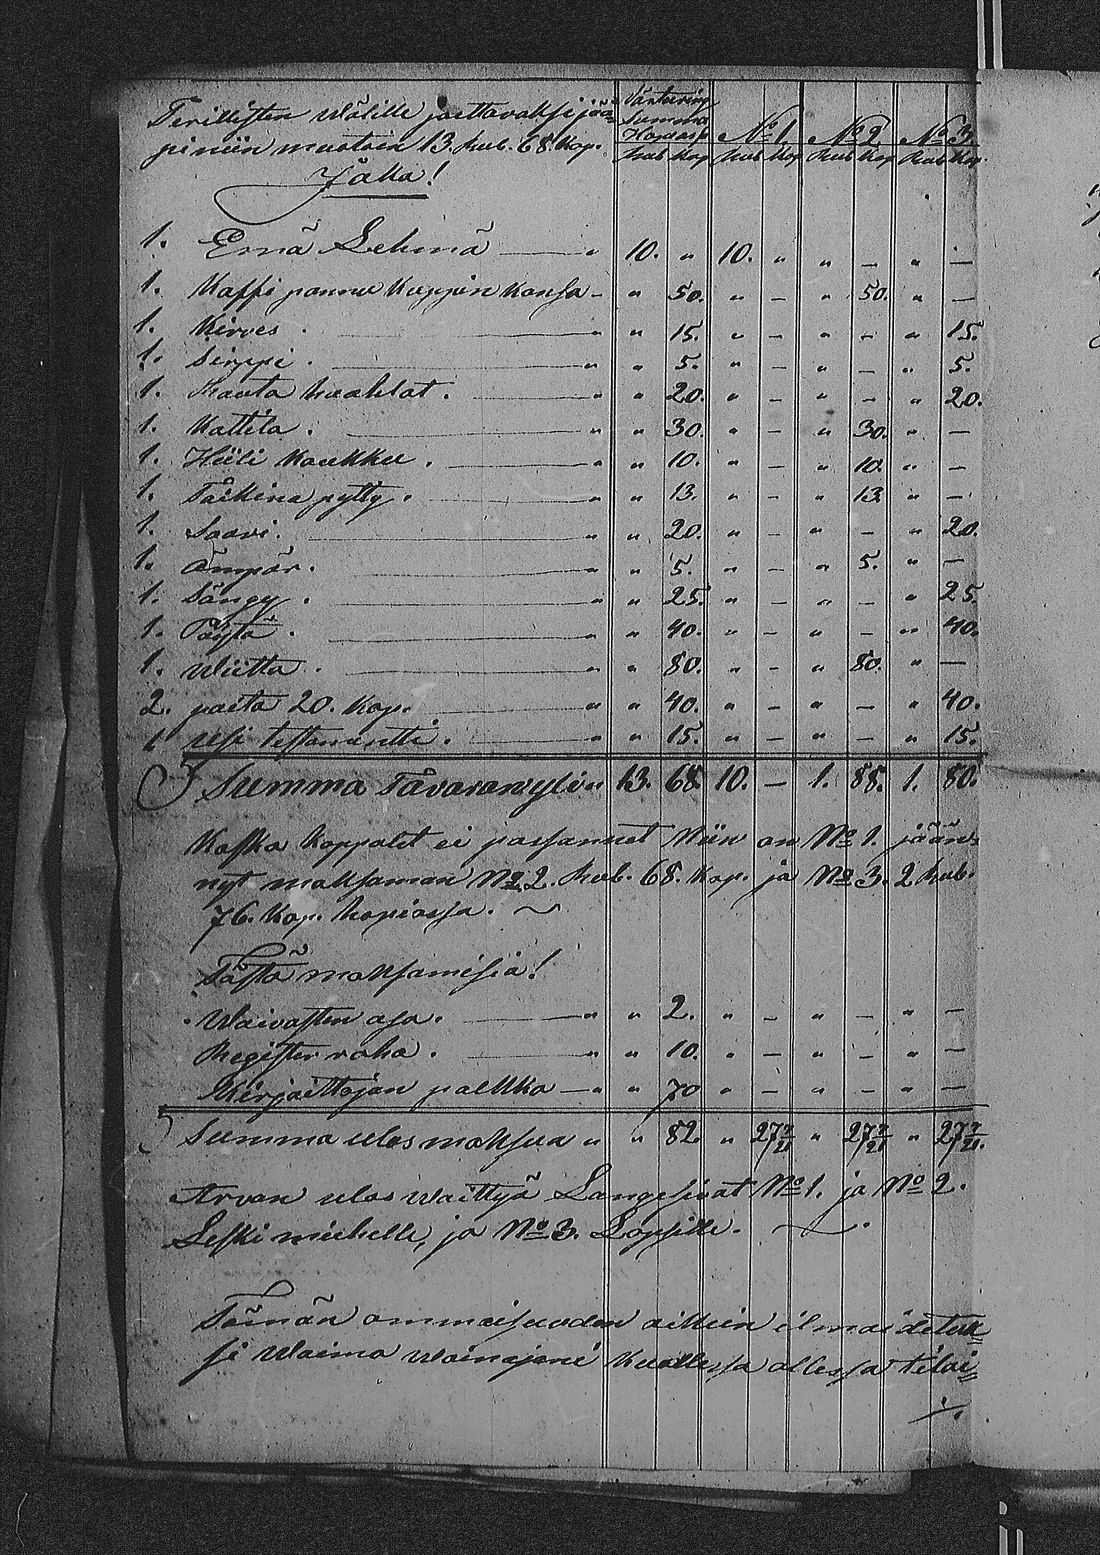 Perillisten wälille jaettavaksi jää=
pi niin muotoin 13. Rub. 68. Kop.
Jako!
Värteering Summa Hopiassa | No 1. | No 2. | No 3.
Rub Kop | Rub Kop | Rub Kop | Rub Kop
1. Emä Lehmä — " 10. " 10. " " — " —
1. Kaffi pannu Kuppin kansa — " 50. " — " 50. " —
1. Kirves . — " " 15. " — " — " 15.
1. Sirppi . — " " 5. " — " — " 5.
1. Rauta kuahlat . — " " 20. " — " — " 20.
1. Kattila . — " " 30. " — " 30. " —
1. Hiili koukku . — " " 10. " — " 10. " —
1. Taikina pytty . — " " 13. " — " 13 " —
1. Saavi . — " " 20. " — " — " 20.
1. Ämpär . — " " 5. " — " 5. " —
1. Sängy . — " " 25. " — " — " 25.
1. Pöytä . — " " 40. " — " — " 40.
1. Wiitta . — " " 80. " — " 80. " —
2. paita 20. Kop. — " " 40. " — " — " 40.
1 usi testamentti . — " " 15. " — " — " 15.
Summa Tavaran yli " 13. 68. 10. — 1. 88. 1. 80.
Koska kappalet ei passannet Niin on No 1. jään=
nyt maksaman No 2. 2. Rub. 68. Kop. ja No 3. 2 Rub.
76. Kop. hopiassa.
Tästä maksamisia!
Waivasten osa . — " " 2. " — " — " —
Register raha . — " " 10. " — " — " —
Kirjoittajan palkka — " " 70 " — " — " —
Summa ulos maksua " " 82. " 27 7/21 " 27 7/21 " 27 7/21.
Arvan ulos waittyä Langesivat No 1. ja No 2.
Leski miehelle, ja No 3. Lapsille.
Tämän ommaisuuden oikein ilmoidetuk=
si Waimo wainajani kuollessa ollessa tilai=